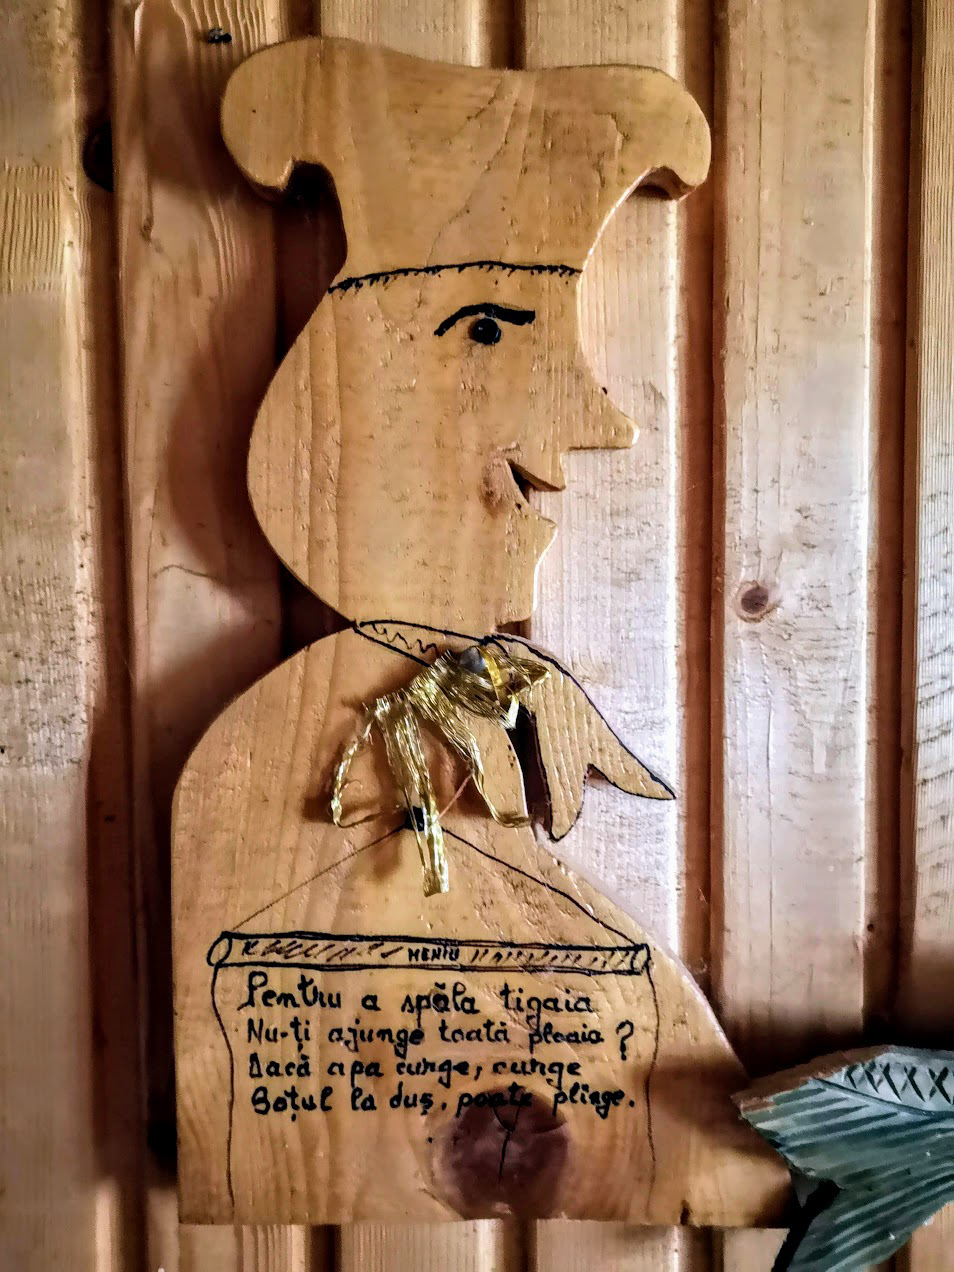 MENIU
Pentru a spăla tigaia
Nu-ți ajunge toată ploaia ?
Dacă apa curge, curge
Soțul la duș, poate plînge.